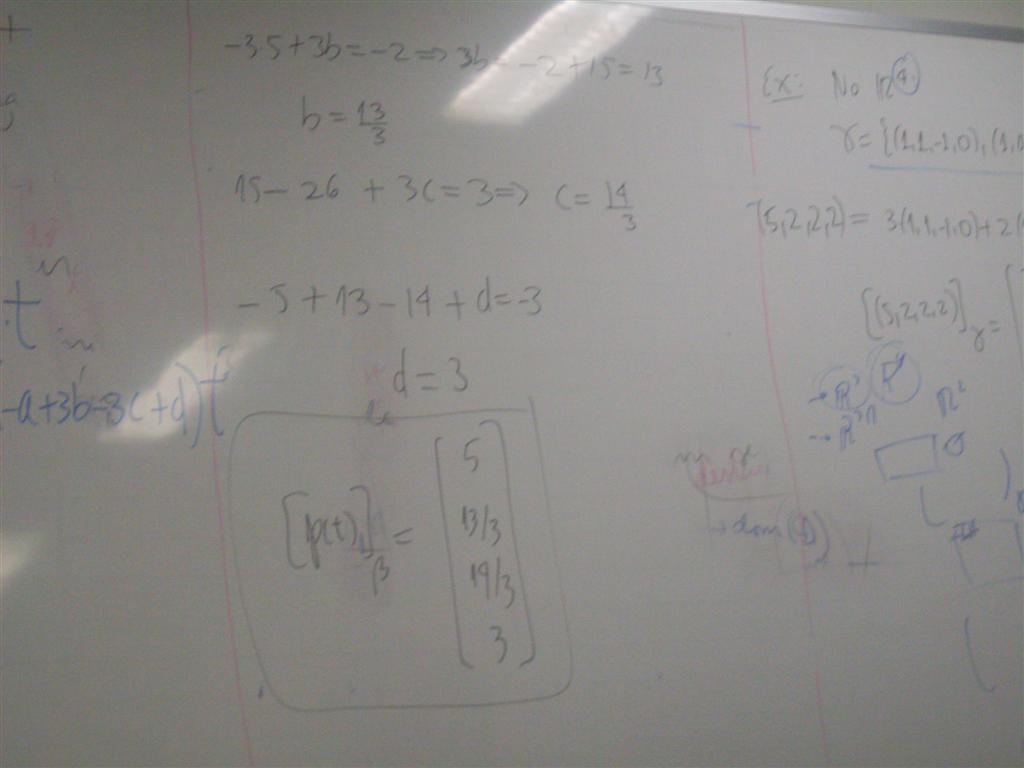 -3.5+3b=-2⇒3b=-2+15=13
b=13/3
15-26+3c=3⇒ c=14/3
-5+13-14+d=-3
d=3
-a+3b-3c+d)t
[p(t)]β = [5 13/3 14/3 3]
Ex: No ℝ⁴
γ={(1,1,-1,0),(1,0
(5,2,2,2)= 3(1,1,-1,0)+2(
[(5,2,2,2)]γ=[
→ℝ³ ℝ⁴
ℝ²
→ dom